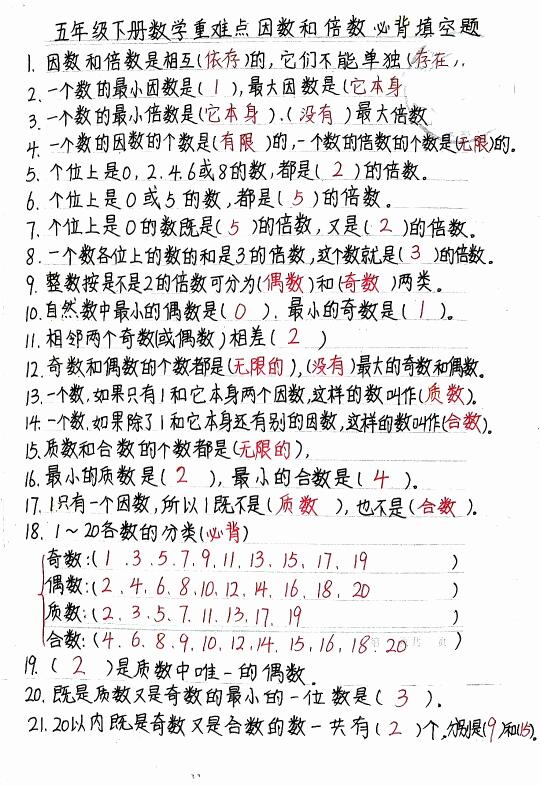 五年级下册数学重难点因数和倍数必背填空题
1. 因数和倍数是相互(依存)的,它们不能单独(存在)。
2. 一个数的最小因数是(1),最大因数是(它本身
3. 一个数的最小倍数是(它本身)、(没有)最大倍数
4. 一个数的因数的个数是(有限)的,一个数的倍数的个数是(无限)的。
5. 个位上是0,2、4、6或8的数,都是(2)的倍数。
6. 个位上是0或5的数,都是(5)的倍数。
7. 个位上是0的数既是(5)的倍数,又是(2)的倍数。
8. 一个数各位上的数的和是3的倍数,这个数就是(3)的倍数。
9. 整数按是不是2的倍数可分为(偶数)和(奇数)两类。
10. 自然数中最小的偶数是(0),最小的奇数是(1)。
11. 相邻两个奇数(或偶数)相差(2)
12. 奇数和偶数的个数都是(无限的),(没有)最大的奇数和偶数。
13. 一个数,如果只有1和它本身两个因数,这样的数叫作(质数)。
14. 一个数,如果除了1和它本身还有别的因数,这样的数叫作(合数)。
15. 质数和合数的个数都是(无限的),
16. 最小的质数是(2),最小的合数是(4)。
17. 1只有一个因数,所以1既不是(质数),也不是(合数)。
18. 1~20各数的分类(必背)
奇数:(1、3、5、7、9、11、13、15、17、19)
偶数:(2、4、6、8、10、12、14、16、18、20)
质数:(2、3、5、7、11、13、17、19)
合数:(4、6、8、9、10、12、14、15、16、18、20)
19. (2)是质数中唯一的偶数。
20. 既是质数又是奇数的最小的一位数是(3)。
21. 20以内既是奇数又是合数的数一共有(2)个,分别是(9)和(15)。